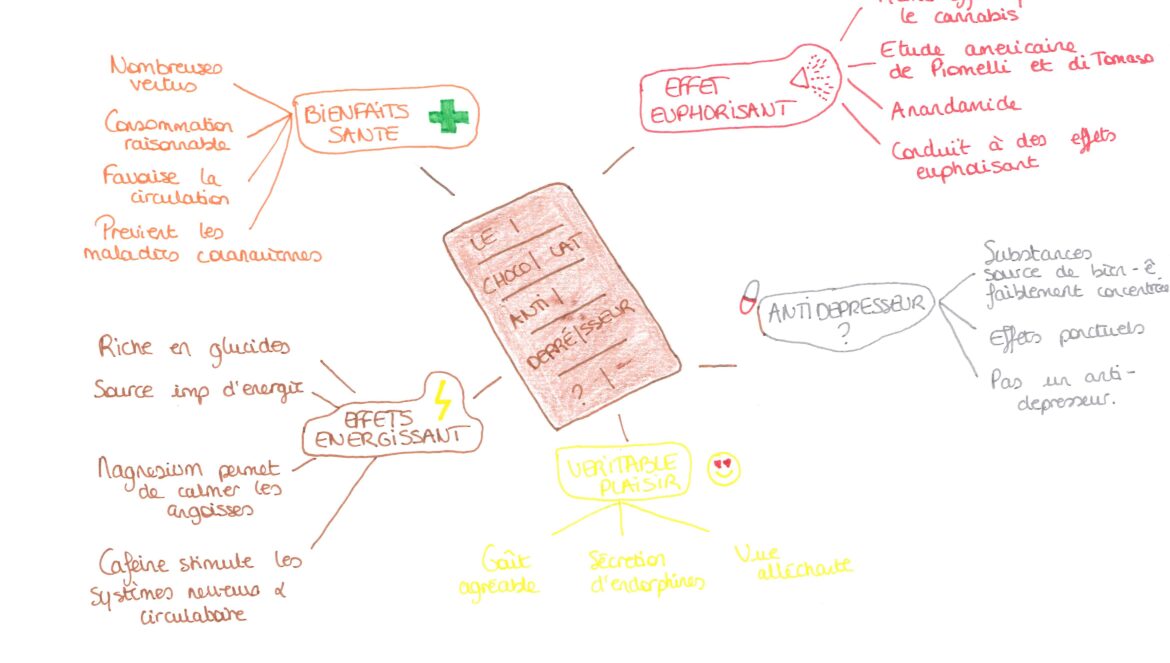 le cannabis
Etude américaine
de Piomelli et di Tomaso
Anandamide
Conduit à des effets
euphorisant
EFFET
EUPHORISANT
Nombreuses
vertus
Consommation
raisonnable
Favorise la
circulation
Previent les
maladies coronariennes
BIENFAITS
SANTE
LE
CHOCOLAT
ANTI
DEPRESSEUR
?
Substances
source de bien-ê
faiblement concentrée
Effets ponctuels
Pas un anti-
depresseur.
ANTIDEPRESSEUR
?
Riche en glucides
Source imp d'energie
Magnesium permet
de calmer les
angoisses
Caféine stimule les
systèmes nerveux &
circulatoire
EFFETS
ENERGISSANT
VERITABLE
PLAISIR
Goût
agréable
Sécretion
d'endorphines
Vue
alléchante